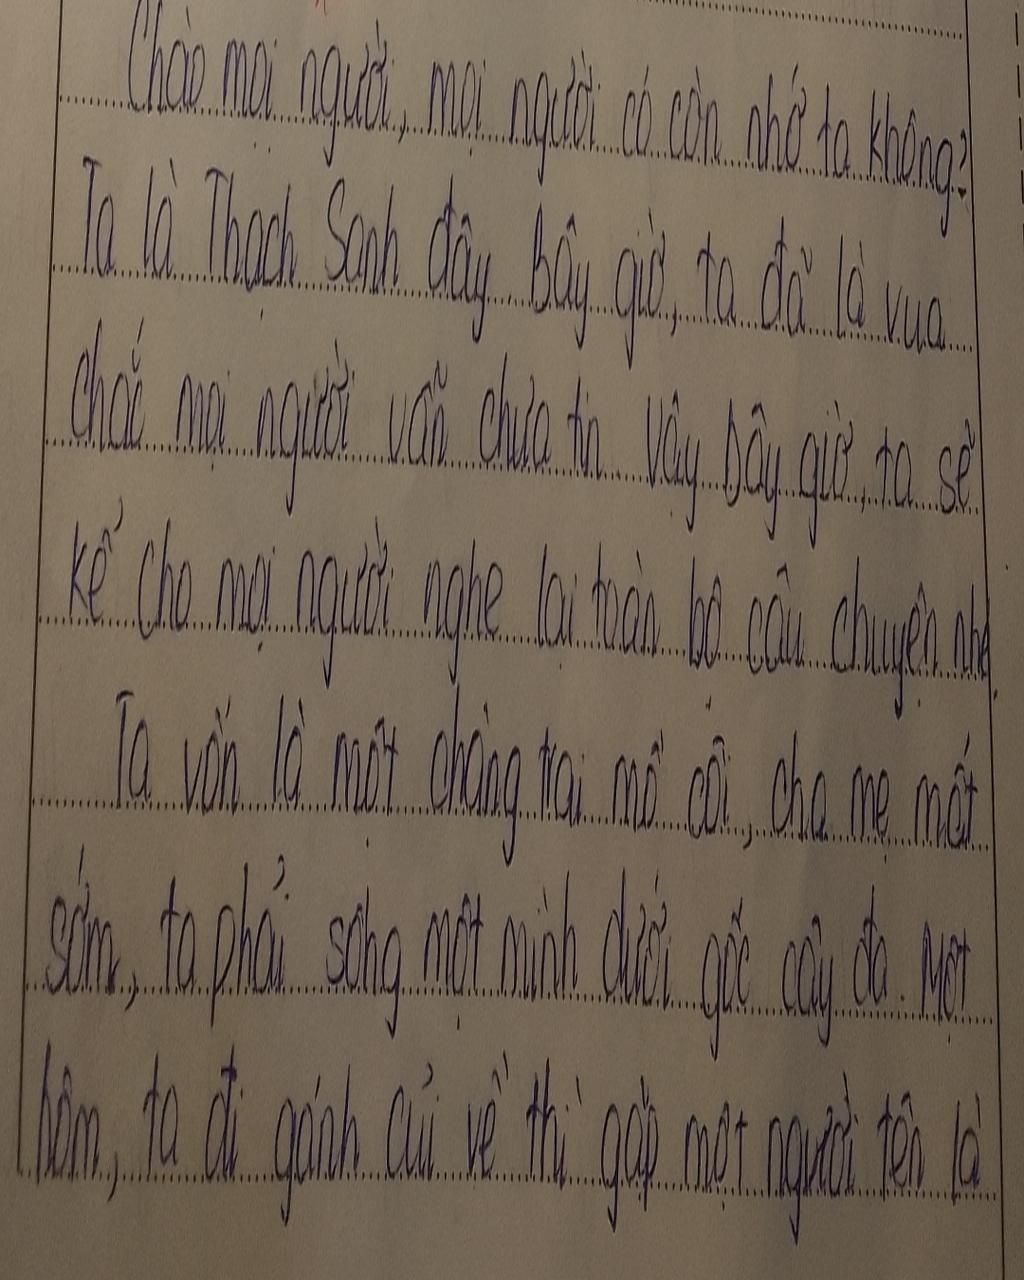 Chào mọi người, mọi người có còn nhớ ta không?
Ta là Thạch Sanh đây Bây giờ, ta đã là vua
chắc mọi người vẫn chưa tin Vậy bây giờ, ta sẽ
kể cho mọi người nghe lại toàn bộ câu chuyện nhé.
Ta vốn là một chàng trai mồ côi, cha mẹ mất
sớm, ta phải sống một mình dưới gốc cây đa. Một
hôm, ta đi gánh củi về thì gặp một người tên là